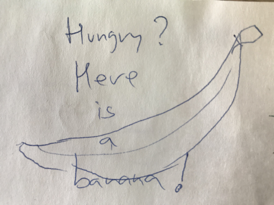 Hungry?
Here
is
a
banana!